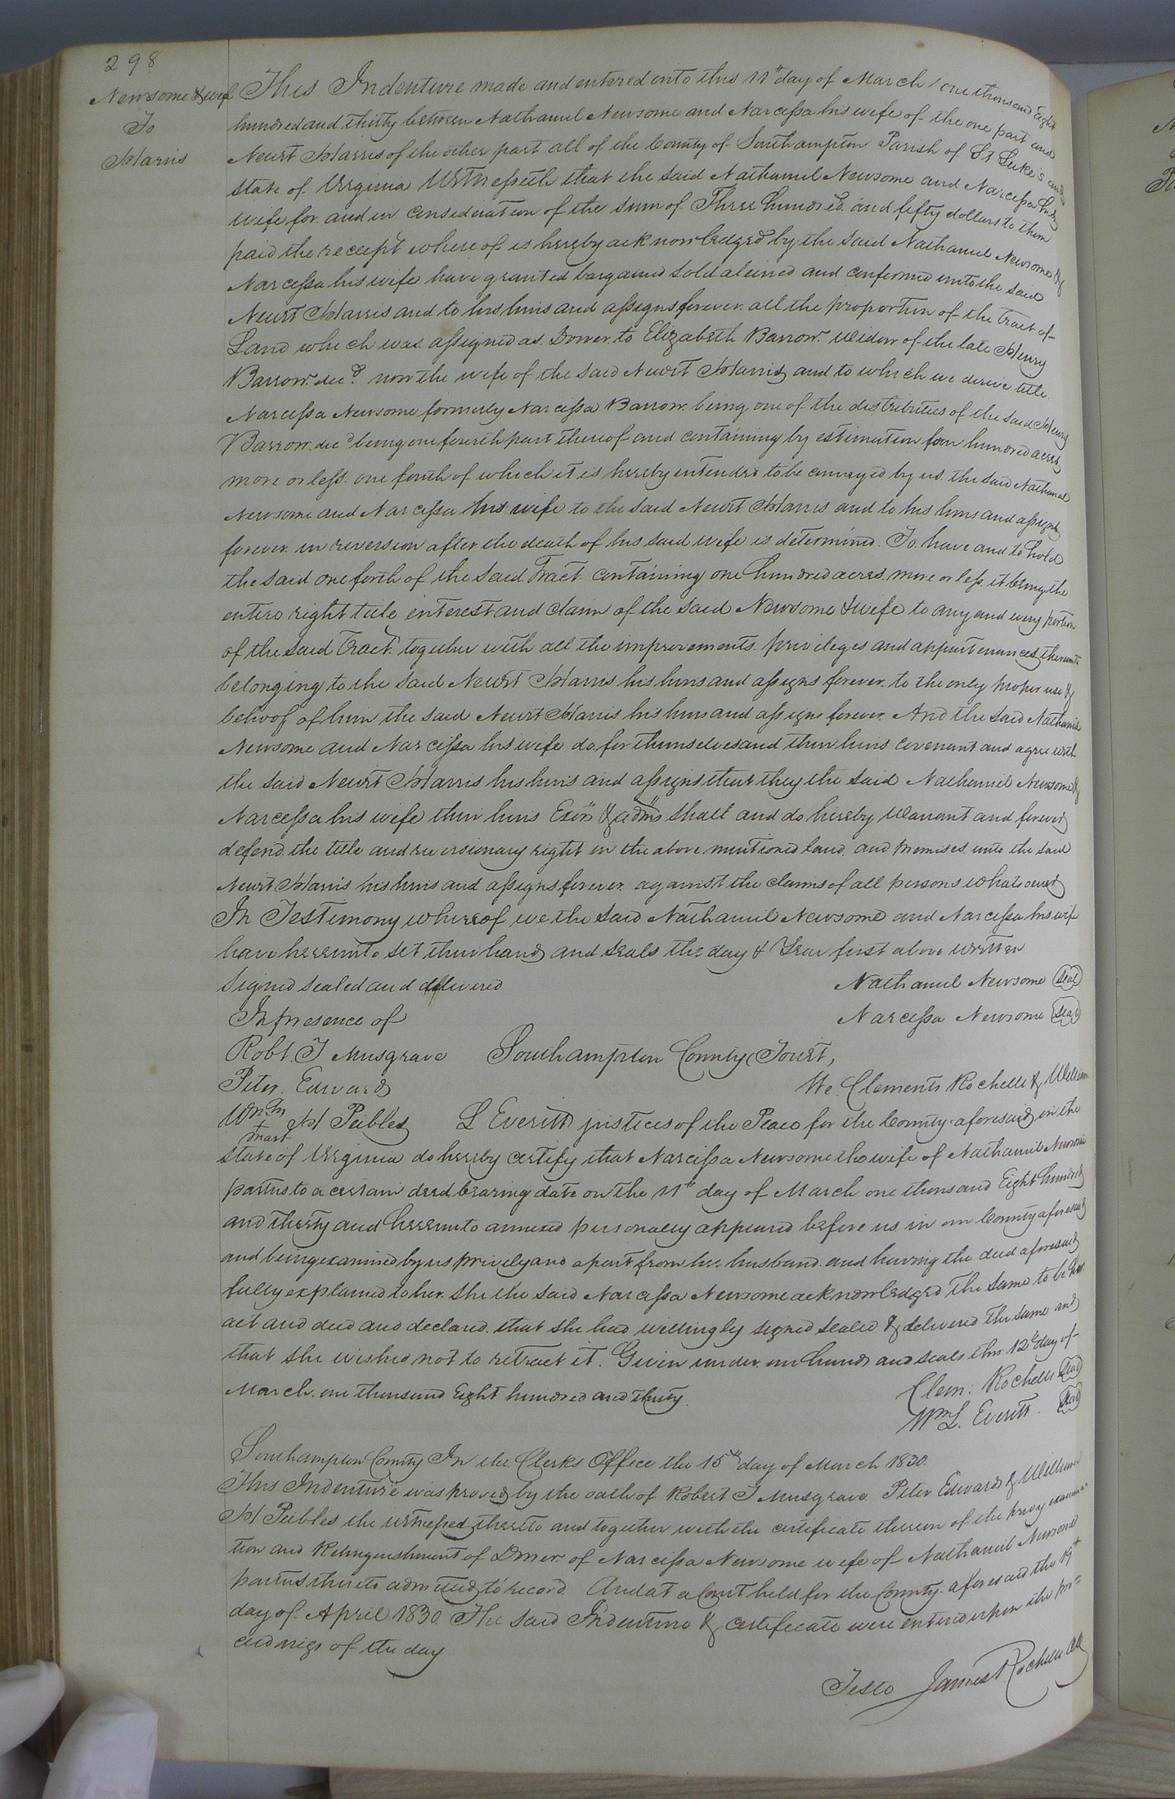 298
Newsome & wife
To
Harris
This Indenture made and entered onto this 11th day of March one thousand Eight
hundred and thirty between Nathaniel Newsome and Narcissa his wife of the one part and
Newit Harris of the other part all of the County of Southampton Parish of St Luke's and
state of Virginia Witnesseth that the said Nathaniel Newsome and Narcissa his
wife for and in consideration of the sum of Three hundred and fifty dollars to them
paid the receipt where of is hereby acknowledged by the said Nathaniel Newsome &
Narcissa his wife have granted bargained sold aliened and confirmed unto the said
Newit Harris and to his heirs and assigns forever all the proportion of the Tract of
Land which was assigned as Dower to Elizabeth Barrow widow of the late Henry
Barrow decd. now the wife of the said Newit Harris and to which we derive title
Narcissa Newsome formerly Narcissa Barrow being one of the distributees of the said Henry
Barrow decd being one fourth part thereof and containing by estimation four hundred acres
more or less one fourth of which it is hereby intended to be conveyed by us the said Nathaniel
Newsome and Narcissa his wife to the said Newit Harris and to his heirs and assigns
forever in reversion after the death of his said wife is determined. To have and to hold
the said one forth of the said Tract containing one hundred acres more or less it being the
entire right title interest and claim of the said Newsome & wife to any and every portion
of the said Tract together with all the improvements privileges and appurtenances thereunto
belonging to the said Newit Harris his heirs and assigns forever to the only proper use &
behoof of him the said Newit Harris his heirs and assigns forever. And the said Nathaniel
Newsome and Narcissa his wife do for themselves and their heirs covenant and agree with
the said Newit Harris his heirs and assigns that they the said Nathaniel Newsome &
Narcessa his wife their heirs Exors & adms shall and do hereby Warrant and forever
defend the title and reversionary right in the above mentioned land and premises unto the said
Newit Harris his heirs and assigns forever against the claims of all persons whatsoever
In Testimony whereof we the said Nathaniel Newsome and Narcissa his wife
have hereunto set their hands and seals the day & Year first above written
Signed sealed and delivered Nathaniel Newsome Seal
In presence of Narcessa Newsome Seal
Robt. T Musgrave Southampton County Court,
Peter Edwards We Clements Rochelle & William
Wm H Peebles L Everitt justices of the Peace for the County aforesaid in the
state of Virginia do hereby certify that Narcissa Newsome the wife of Nathaniel Newsome
parties to a certain deed bearing date on the 11th day of March one thousand Eight hundred
and thirty and hereunto annexed personally appeared before us in our County aforesaid
and being examined by us privily and apart from her husband and having the deed aforesaid
fully explained to her she the said Narcissa Newsome acknowledged the same to be her
act and deed and declared that she had willingly signed sealed & delivered the same and
that she wished not to retract it. Given under our hands and seals this 12th day of
March one thousand Eight hundred and thirty. Clem: Rochelle Seal
Wm L. Everitt Seal
Southampton County In the Clerks Office the 15th day of March 1830.
This Indenture was proved by the oath of Robert T Musgrave Peter Edwards & William
H Peebles the witnesses thereto and together with the certificate thereon of the privy examina-
tion and Relinquishment of Dower of Narcissa Newsome wife of Nathaniel Newsome
parties thereto admitted to record And at a Court held for the County aforesaid the 19th
day of April 1830 The said Indenture & certificate were entered upon the pro-
ceedings of the day
Teste James Rochelle